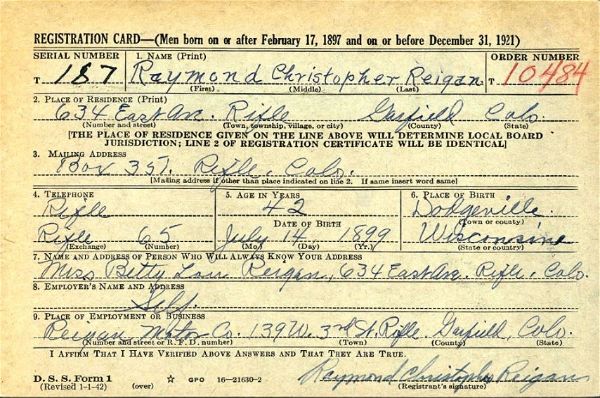 REGISTRATION CARD—(Men born on or after February 17, 1897 and on or before December 31, 1921)
SERIAL NUMBER 1. NAME (Print) ORDER NUMBER
T 187 Raymond Christopher Reigan T 10484
(First) (Middle) (Last)
2. PLACE OF RESIDENCE (Print)
634 East Av. Rifle Garfield Colo
(Number and street) (Town, township, village, or city) (County) (State)
[THE PLACE OF RESIDENCE GIVEN ON THE LINE ABOVE WILL DETERMINE LOCAL BOARD
JURISDICTION; LINE 2 OF REGISTRATION CERTIFICATE WILL BE IDENTICAL]
3. MAILING ADDRESS
Box 357. Rifle, Colo.
[Mailing address if other than place indicated on line 2. If same insert word same]
4. TELEPHONE 5. AGE IN YEARS 6. PLACE OF BIRTH
Rifle 42 Dodgeville
DATE OF BIRTH (Town or county)
Rifle 65 July 14 1899 Wisconsine
(Exchange) (Number) (Mo.) (Day) (Yr.) (State or country)
7. NAME AND ADDRESS OF PERSON WHO WILL ALWAYS KNOW YOUR ADDRESS
Miss Betty Lou Reigan, 634 East Av. Rifle, Colo.
8. EMPLOYER'S NAME AND ADDRESS
Self.
9. PLACE OF EMPLOYMENT OR BUSINESS
Reigan Motor Co. 139 W. 3rd St. Rifle. Garfield, Colo.
(Number and street or R. F. D. number) (Town) (County) (State)
I AFFIRM THAT I HAVE VERIFIED ABOVE ANSWERS AND THAT THEY ARE TRUE.
Raymond Christopher Reigan
D. S. S. Form 1
(Revised 1-1-42) (over) ☆ GPO 16—21630-2 (Registrant's signature)